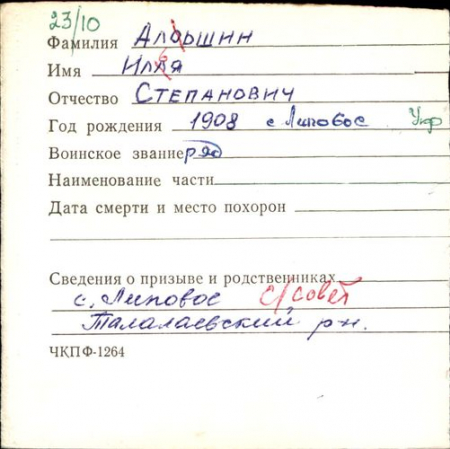 23/10
Фамилия Алёршин
Имя Илья
Отчество Степанович
Год рождения 1908 с Липовое Укр
Воинское звание ряд
Наименование части
Дата смерти и место похорон
Сведения о призыве и родственниках
с. Липовое с/совет
Талалаевский р-н.
ЧКПФ-1264